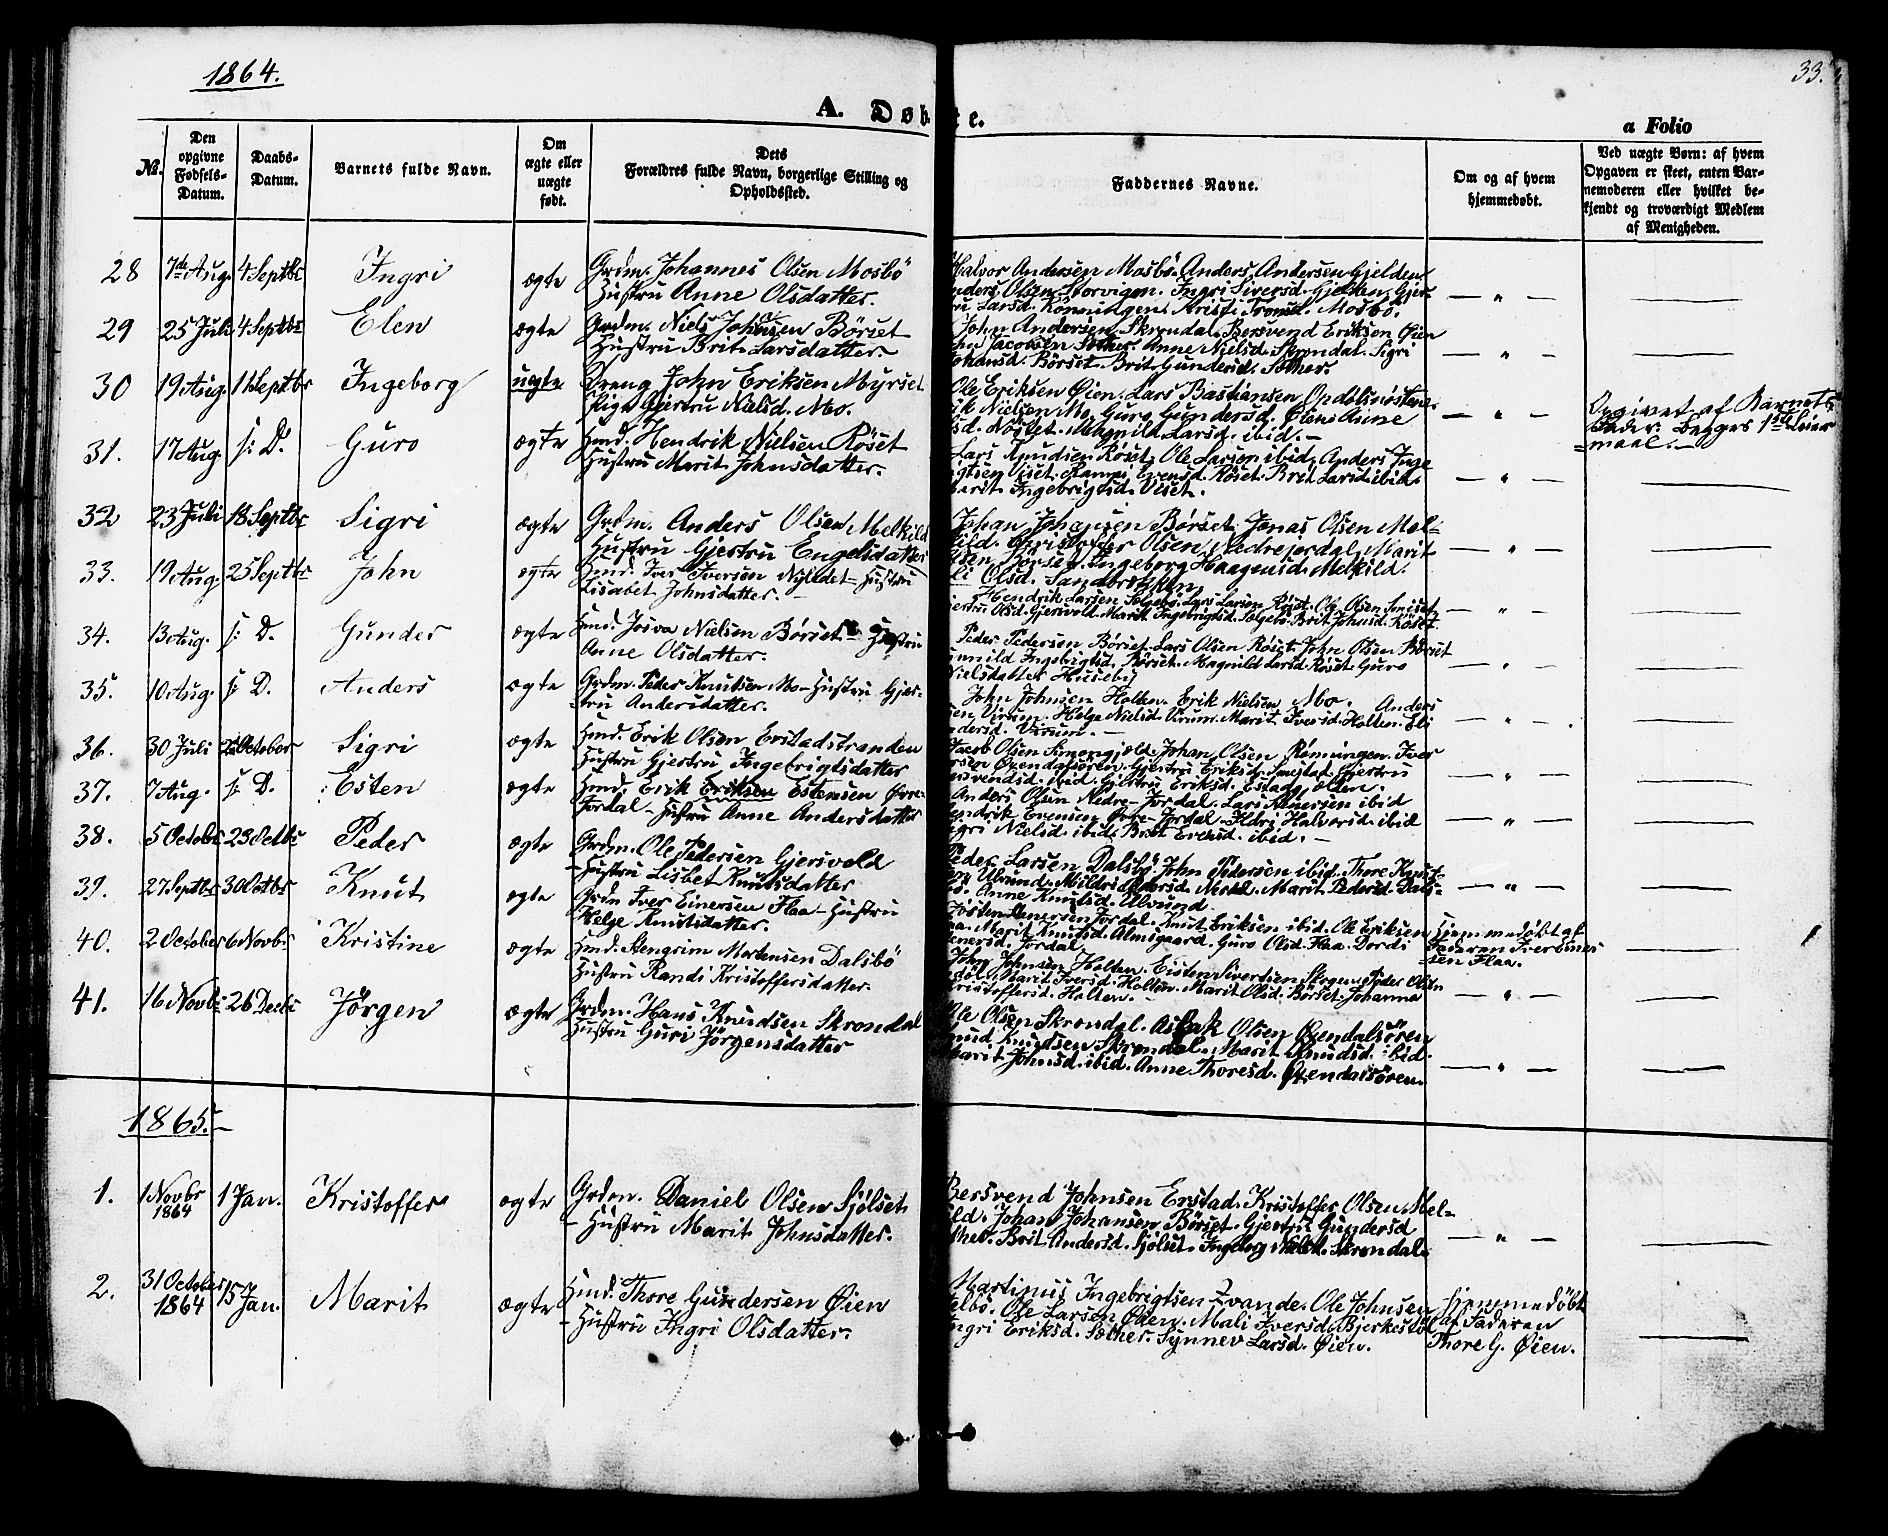 1864.
33.
A. Døbte.
a Folio
No.
Den opgivne Fødsels-Datum.
Daabs-Datum.
Barnets fulde Navn.
Om ægte eller uægte født.
Dets Forældres fulde Navn, borgerlige Stilling og Opholdssted.
Faddernes Navne.
Om og af hvem hjemmedøbt.
Ved uægte Børn: af hvem Opgaven er skeet, enten Barnemoderen eller hvilket bekjendt og troværdigt Medlem af Menigheden.
28 7de Aug. 4 Septbr Ingri ægte Grdm. Johannes Olsen Mosbö
Hustru Anne Olsdatter.
Halvor Andersen Mosbö. Anders Andersen Gjelden
Olsen Storvigen. Ingri Siversd. Gjelten. Gjer-
Larsd. Rönningen. Tromsd. Mosbö.
29 25 Juli 4 Septbr Elen ægte Grdm. Niels Johnsen Börset
Hustru Brit Larsdatter.
John Andersen Skrondal. Bersvend Eriksen Øien
Jacobsen Sæther. Anne Nielsd. Skrondal. Sigri
Johansd. Börset. Brit Gundersd. Sæther.
30 19 Aug. 11 Septbr Ingeborg uægte Dreng John Eriksen Myrset
Pige Gjertru Nielsd. Mo.
Ole Eriksen Øien. Lars Bastiansen
Nielsen Mo. Guro Gundersd. Øien. Anne
Magnild Larsd. ibid. -
Opgivet af Barnets
Fader. begges 1ste Leier
maal. -
31. 17 Aug. s: D. Guro ægte Hmd. Hendrik Nielsen Röset
Hustru Marit Johnsdatter.
Lars Knudsen Röset. Ole Larsen ibid. Anders Inge
Viset. Evensd. Röset. Brit Larsd. ibid.
Marit Ingebrigtsd. Viset.
32 23 Juli 18 Septbr Sigri ægte Grdm. Anders Olsen Melkild
Hustru Gjertru Engelsdatter
Johan Johansen Börset. Jonas Olsen Mel-
kild. Christoffer Olsen Nedrejordal. Marit
Ingeborg Haagensd. Melkild.
Olsd. Sandbrekken
33. 19 Aug. 25 Septbr John ægte Hmd. Iver Iversen Hustru
Lisabet Johnsdatter. -
Hendrik Larsen Lars Larsen Röset. Ole Olsen
Olsd. Gjersvold. Marit Ingebrigtsd. Brit Johnsd. Röset
34. 13 Aug. s: D. Gunder ægte Hmd. Josva Nielsen Börset Hustru
Anne Olsdatter.
Peder Pedersen Börset. Lars Olsen Röset. John Olsen Börset
Gunnild Ingebrigtsd. Börset. Magnild Larsd. Röset. Guro
Nielsdatter Huseby
35. 10 Aug. s: D. Anders ægte Grdm. Peder Knutsen Mo - Hustru Gjer-
tru Andersdatter.
John Johnsen Holten. Erik Nielsen Mo. Anders
Virum. Helge Nielsd. Virum. Marit Iversd. Holten. Eli
Virum. -
36. 30 Juli October Sigri ægte Hmd. Erik Olsen Erstadstranden
Hustru Gjertru Ingebrigtsdatter
Jacob Olsen Simengjeld. Johan Olsen Rönningen. Iver
Øxendalsören. Gjertru Eriksd. Gjertru
ibid. Gjertru Eriksd.
37. 7 Aug. s: D. Esten ægte Hmd. Erik Eriksen Estensen Øvre-
Jordal - Hustru Anne Andersdatter
Anders Olsen Nedre-Jordal. Lars Einersen ibid
Hendrik Evensen Øvre-Jordal. Halvorsd. ibid
Ingri Nielsd. ibid. Brit Evensd. ibid. -
38. 5 October 23 Octbr Peder ægte Grdm. Ole Pedersen Gjersvold
- Hustru Lisbet Knutsdatter
Peder Larsen Dalsbö. John Pedersen ibid. Thore Knut-
sen Ulvund. Mildrid Marit Pedersd. Dals-
bö. Anne Knutsd. Ulvund.
39. 27 Septbr 30 Octbr Knut ægte Grdm Iver Einersen Flaa - Hustru
Helge Knutsdatter.
Jösten Einersen Jordal. Knut Eriksen ibid. Ole Eriksen
Marit Knutsd. Almsgaard. Guro Olsd. Flaa. Dordi
Einersd. Jordal.
Hjemmedøbt af
Faderen Iver Einer
sen Flaa.
40. 2 October 6 Novbr Kristine ægte Hmd. Hengrim Mortensen Dalsbö
Hustru Randi Kristoffersdatter.
John Johnsen Holten. Eisten Sivertsen Peder Olsen
Marit Iversd. Holten. Marit Olsd. Börset. Johanna
Kristoffersd. Holten. -
41. 16 Novbr 26 Decbr Jörgen ægte Grdm. Hans Knudsen Skrondal
Hustru Guri Jörgensdatter
Ole Olsen Skrondal. Aslak Olsen Øxendalsören
Knud Knudsen Skrondal. Marit Knudsd. ibid.
Marit Johnsd. ibid. Anne Thoresd. Øxendalsören.
1865. -
1. 1 Novbr 1864 1 Jan. Kristoffer ægte Grdm. Daniel Olsen Sjölset
- Hustru Marit Johnsdatter.
Bersvend Johnsen Erstad. Kristoffer Olsen Mel-
kild. Johan Johansen Börset. Gjertru Gundersd
Sæther. Brit Andersd. Sjölset. Ingeborg Nielsd. Skrondal.
2. 31 October 1864 15 Jan. Marit ægte Hmd. Thore Gundersen Øien
- Hustru Ingri Olsdatter.
Martinus Ingebrigtsen Ole Johnsen
Ole Larsen Øien. Mali Iversd. Bjerkestöl
Ingri Eriksd. Sæther. Synnev Larsd. Øien.
Hjemmedøbt
af Faderen
Thore G. Øien.